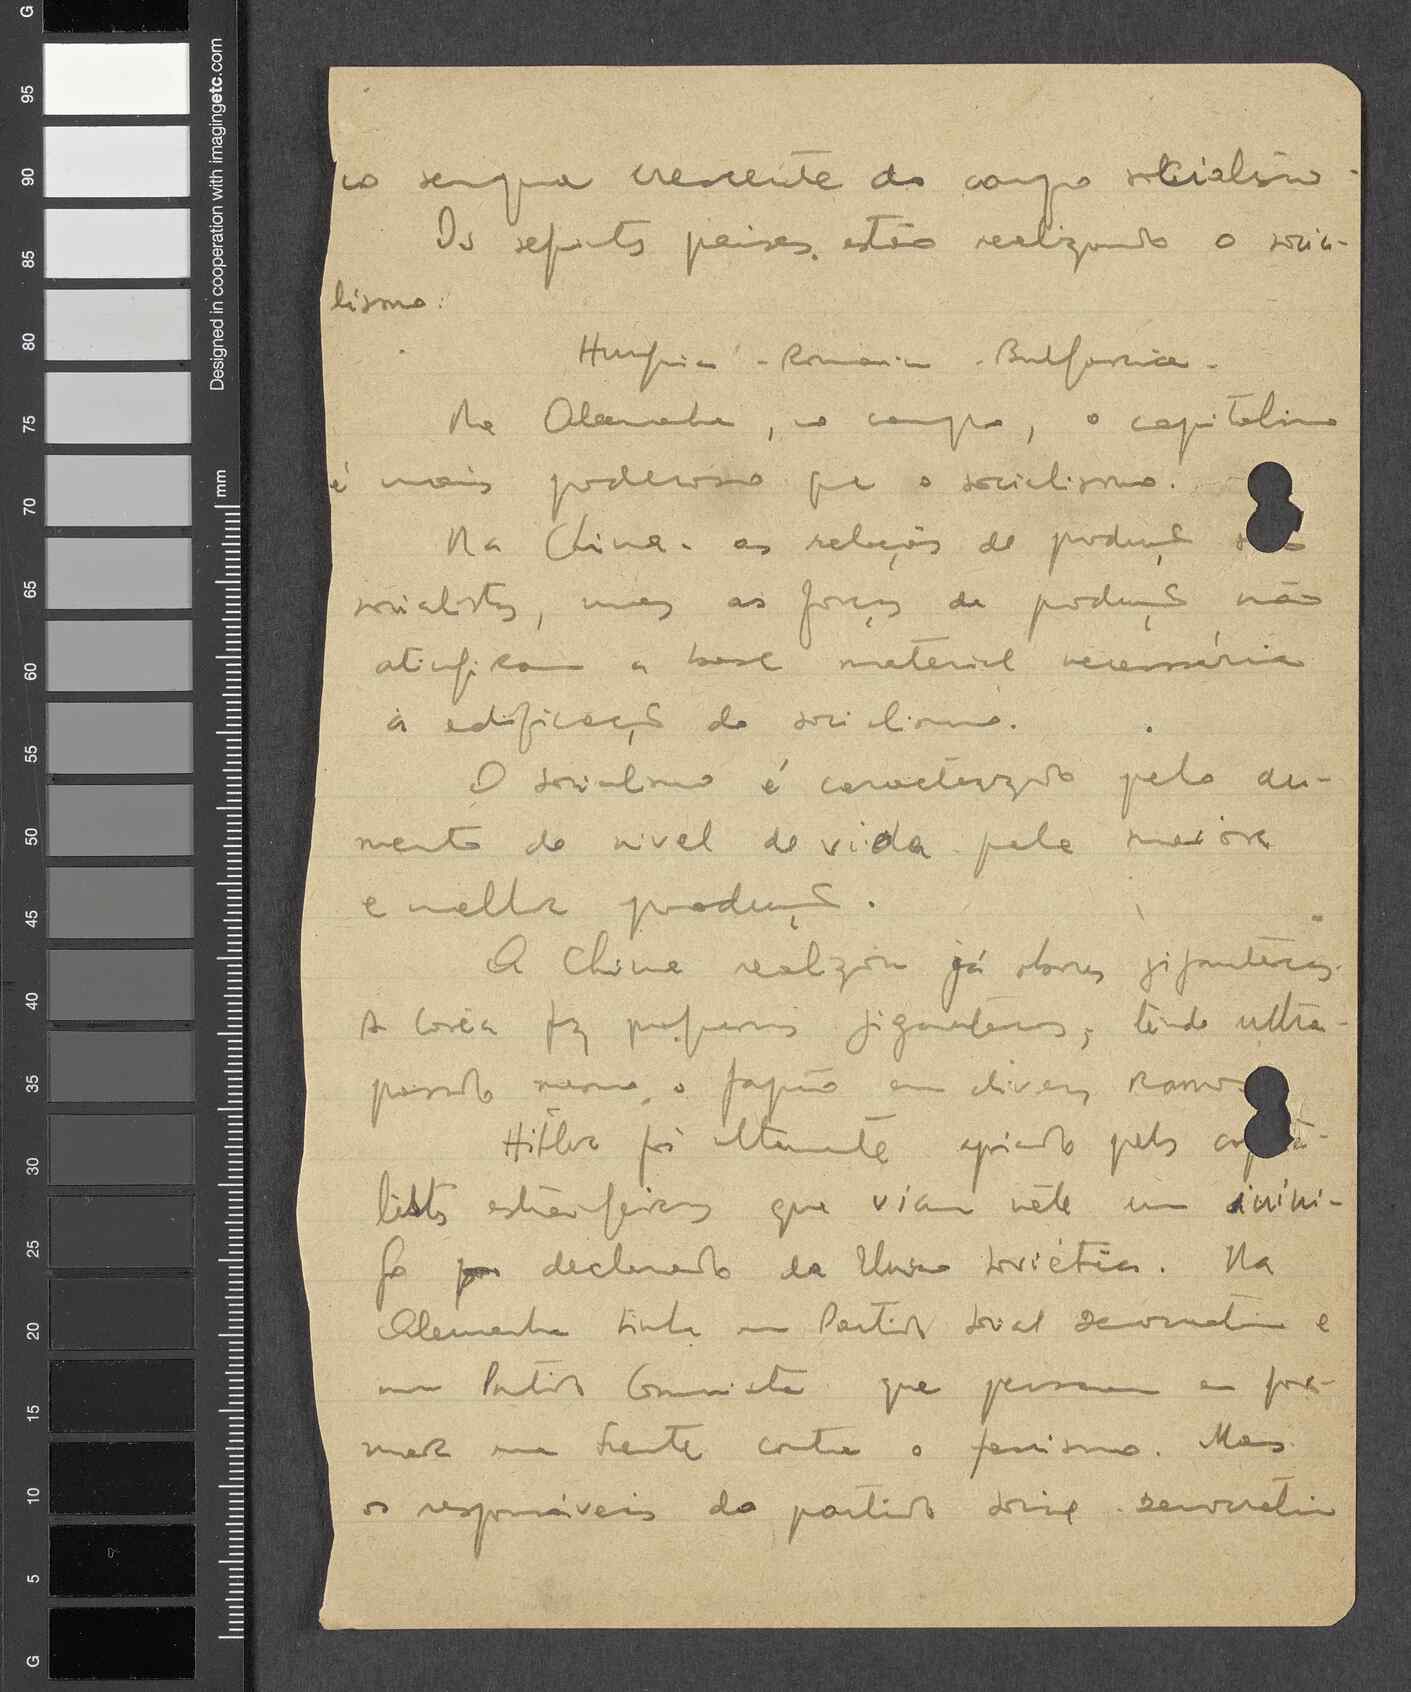 G
95
90
85
80
75
70
65
60
55
50
45
40
35
30
25
20
15
10
5
G
Designed in cooperation with imagingetc.com
mm
sempre crescente do campo socialismo
Os seguintes países, estão realizando o socia-
lismo:
Hungria - Romania - Bulgaria -
Na Alemanha, no campo, o capitalismo
é mais poderoso que o socialismo.
Na China - as relações de produção são
socialistas, mas as forças de produção não
atingiram a base material necessária
à edificação do socialismo.
O socialismo é caracterizado pelo au-
mento do nivel de vida pela maior
e melhor produção.
A China realizou já obras gigantescas.
A Coréa fez progressos gigantescos, tendo ultra-
passado mesmo o Japão em diversos ramos
Hitler foi altamente apoiado pelos capita-
listas estrangeiros que viam nêle um inimi-
go declarado da União Soviética. Na
Alemanha tinha um Partido Social Democratico e
um Partido Comunista que pensavam em for-
mar uma frente contra o fascismo. Mas
os responsáveis do partido social democratico